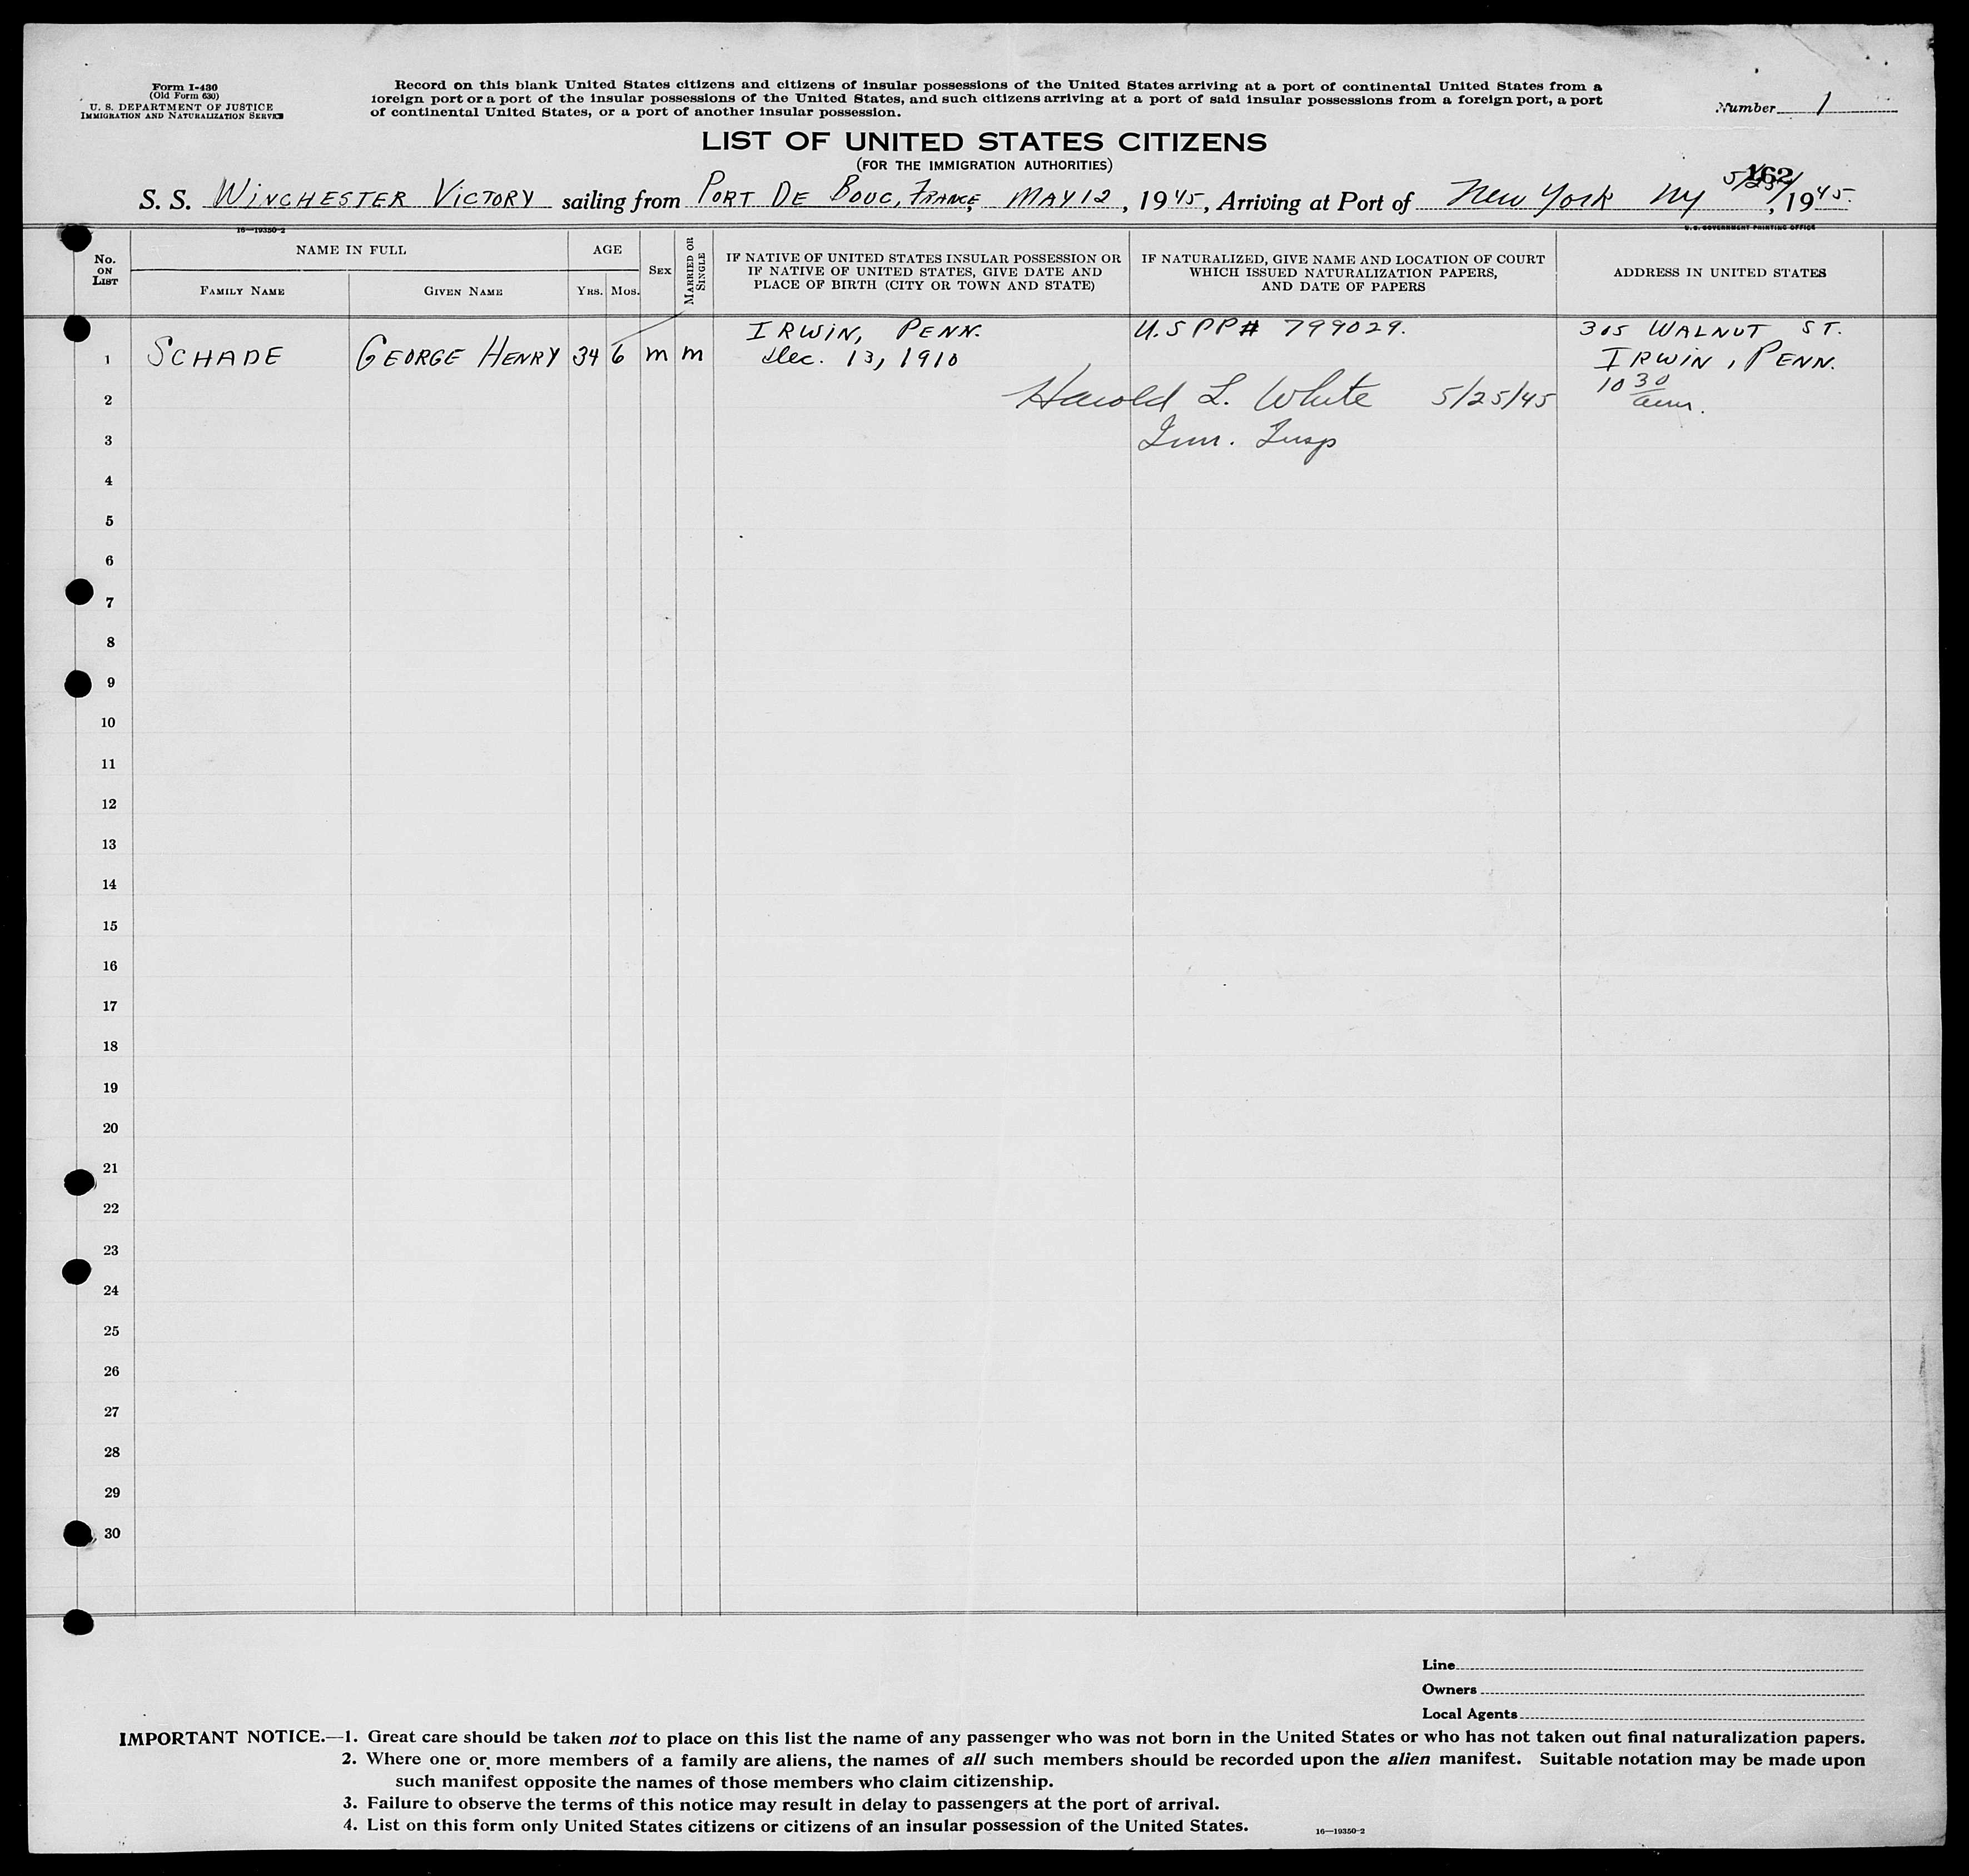 Form I-430
(Old Form 630)
U. S. DEPARTMENT OF JUSTICE
IMMIGRATION AND NATURALIZATION SERVICE
Record on this blank United States citizens and citizens of insular possessions of the United States arriving at a port of continental United States from a
foreign port or a port of the insular possessions of the United States, and such citizens arriving at a port of said insular possessions from a foreign port, a port
of continental United States, or a port of another insular possession.
Number 1
LIST OF UNITED STATES CITIZENS
(FOR THE IMMIGRATION AUTHORITIES)
162
S. S. WINCHESTER VICTORY sailing from PORT DE BOUC, FRANCE MAY 12, 1945, Arriving at Port of New York NY 5/25/, 1945.
16—19350-2
U. S. GOVERNMENT PRINTING OFFICE
No. ON LIST
NAME IN FULL
FAMILY NAME
GIVEN NAME
AGE
YRS.
MOS.
SEX
MARRIED OR SINGLE
IF NATIVE OF UNITED STATES INSULAR POSSESSION OR
IF NATIVE OF UNITED STATES, GIVE DATE AND
PLACE OF BIRTH (CITY OR TOWN AND STATE)
IF NATURALIZED, GIVE NAME AND LOCATION OF COURT
WHICH ISSUED NATURALIZATION PAPERS,
AND DATE OF PAPERS
ADDRESS IN UNITED STATES
IRWIN, PENN. U.S PP# 799029. 305 WALNUT ST.
1 SCHADE GEORGE HENRY 34 6 m m Dec. 13, 1910 IRWIN, PENN.
2 Harold L. White 5/25/45 10 30 am.
3 Imm. Insp
4
5
6
7
8
9
10
11
12
13
14
15
16
17
18
19
20
21
22
23
24
25
26
27
28
29
30
Line
Owners
Local Agents
IMPORTANT NOTICE.—1. Great care should be taken not to place on this list the name of any passenger who was not born in the United States or who has not taken out final naturalization papers.
2. Where one or more members of a family are aliens, the names of all such members should be recorded upon the alien manifest. Suitable notation may be made upon
such manifest opposite the names of those members who claim citizenship.
3. Failure to observe the terms of this notice may result in delay to passengers at the port of arrival.
4. List on this form only United States citizens or citizens of an insular possession of the United States.
16—19350-2